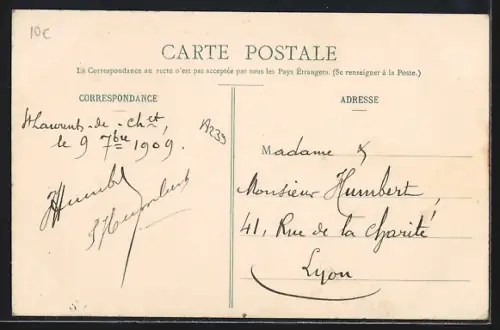 10c
CARTE POSTALE
La Correspondance au recto n'est pas acceptée par tous les Pays Étrangers. (Se renseigner à la Poste.)
CORRESPONDANCE
ADRESSE
St Laurent-de-Chet,
le 9 7bre 1909.
A239
JHumbert
JHumbert
Madame &
Monsieur Humbert,
41, Rue de la Charité
Lyon